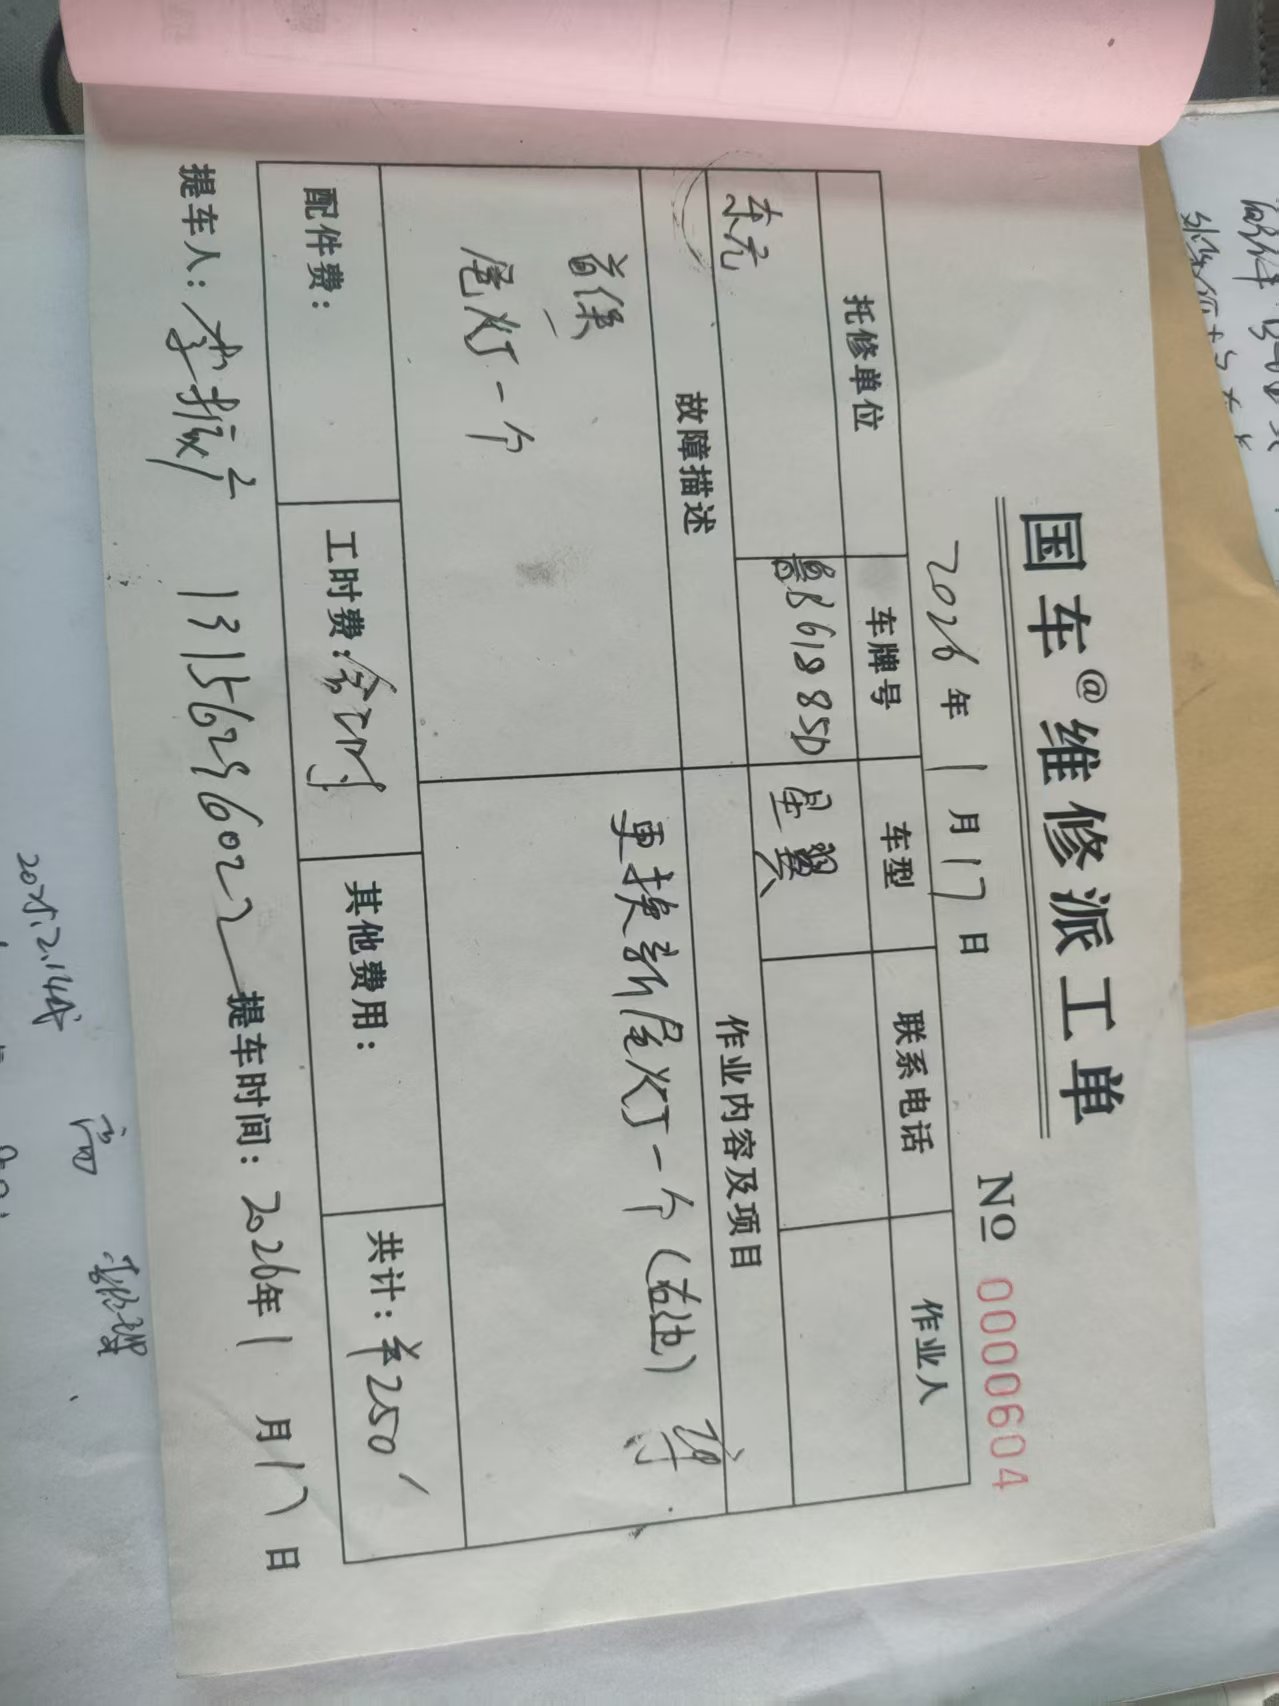 国车@维修派工单
2026年1月17日 No 0000604
托修单位 车牌号 车型 联系电话 作业人
东元 鲁B61885D 星翼
故障描述 作业内容及项目
首保 更换新尾灯一个(右边)
尾灯一个
配件费: 工时费: 其他费用: 共计:¥250
提车人:李 13156296022 提车时间:2026年1月17日
2025.2.14